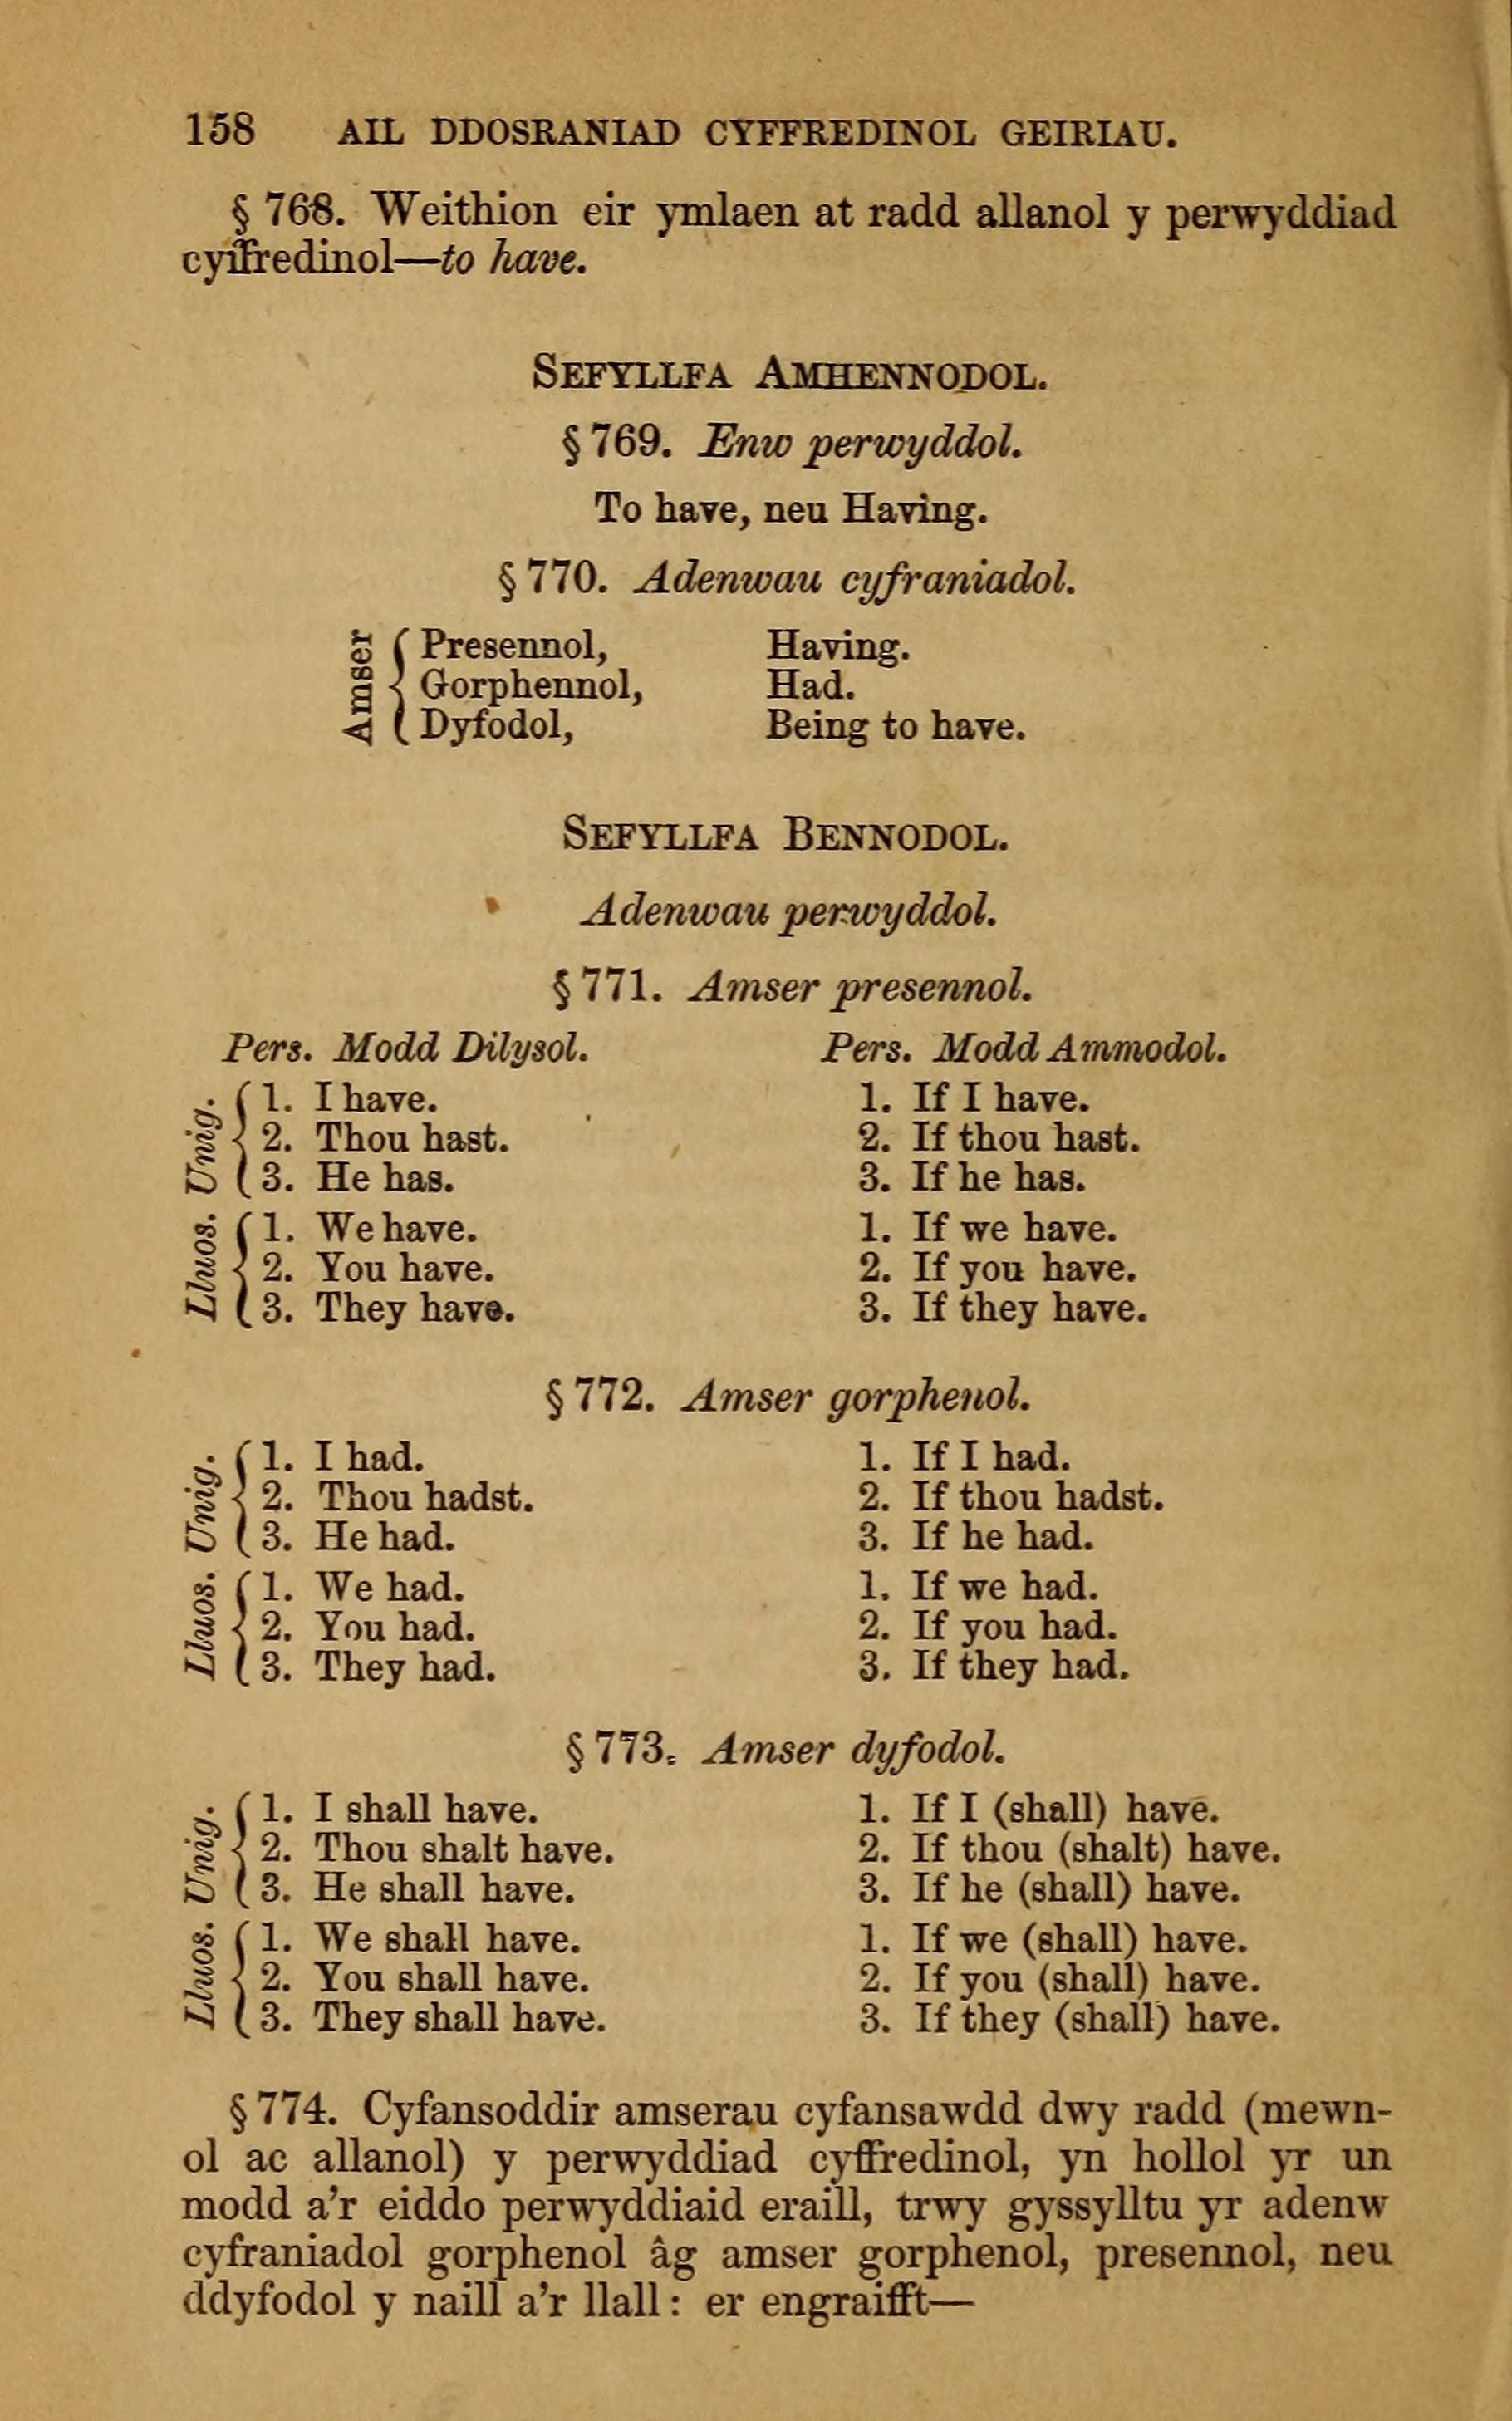 158 AIL DDOSRANIAD CYFFREDINOL GEIRIAU.
§ 768. Weithion eir ymlaen at radd allanol y perwyddiad
cyffredinol—to have.
SEFYLLFA AMHENNODOL.
§ 769. Enw perwyddol.
To have, neu Having.
§ 770. Adenwau cyfraniadol.
Amser
Presennol, Having.
Gorphennol, Had.
Dyfodol, Being to have.
SEFYLLFA BENNODOL.
Adenwau perwyddol.
§ 771. Amser presennol.
Pers. Modd Dilysol. Pers. Modd Ammodol.
Unig.
1. I have. 1. If I have.
2. Thou hast. 2. If thou hast.
3. He has. 3. If he has.
Lluos.
1. We have. 1. If we have.
2. You have. 2. If you have.
3. They have. 3. If they have.
§ 772. Amser gorphenol.
Unig.
1. I had. 1. If I had.
2. Thou hadst. 2. If thou hadst.
3. He had. 3. If he had.
Lluos.
1. We had. 1. If we had.
2. You had. 2. If you had.
3. They had. 3. If they had.
§ 773. Amser dyfodol.
Unig.
1. I shall have. 1. If I (shall) have.
2. Thou shalt have. 2. If thou (shalt) have.
3. He shall have. 3. If he (shall) have.
Lluos.
1. We shall have. 1. If we (shall) have.
2. You shall have. 2. If you (shall) have.
3. They shall have. 3. If they (shall) have.
§ 774. Cyfansoddir amserau cyfansawdd dwy radd (mewn-
ol ac allanol) y perwyddiad cyffredinol, yn hollol yr un
modd a'r eiddo perwyddiaid eraill, trwy gyssylltu yr adenw
cyfraniadol gorphenol âg amser gorphenol, presennol, neu
ddyfodol y naill a'r llall: er engraifft—